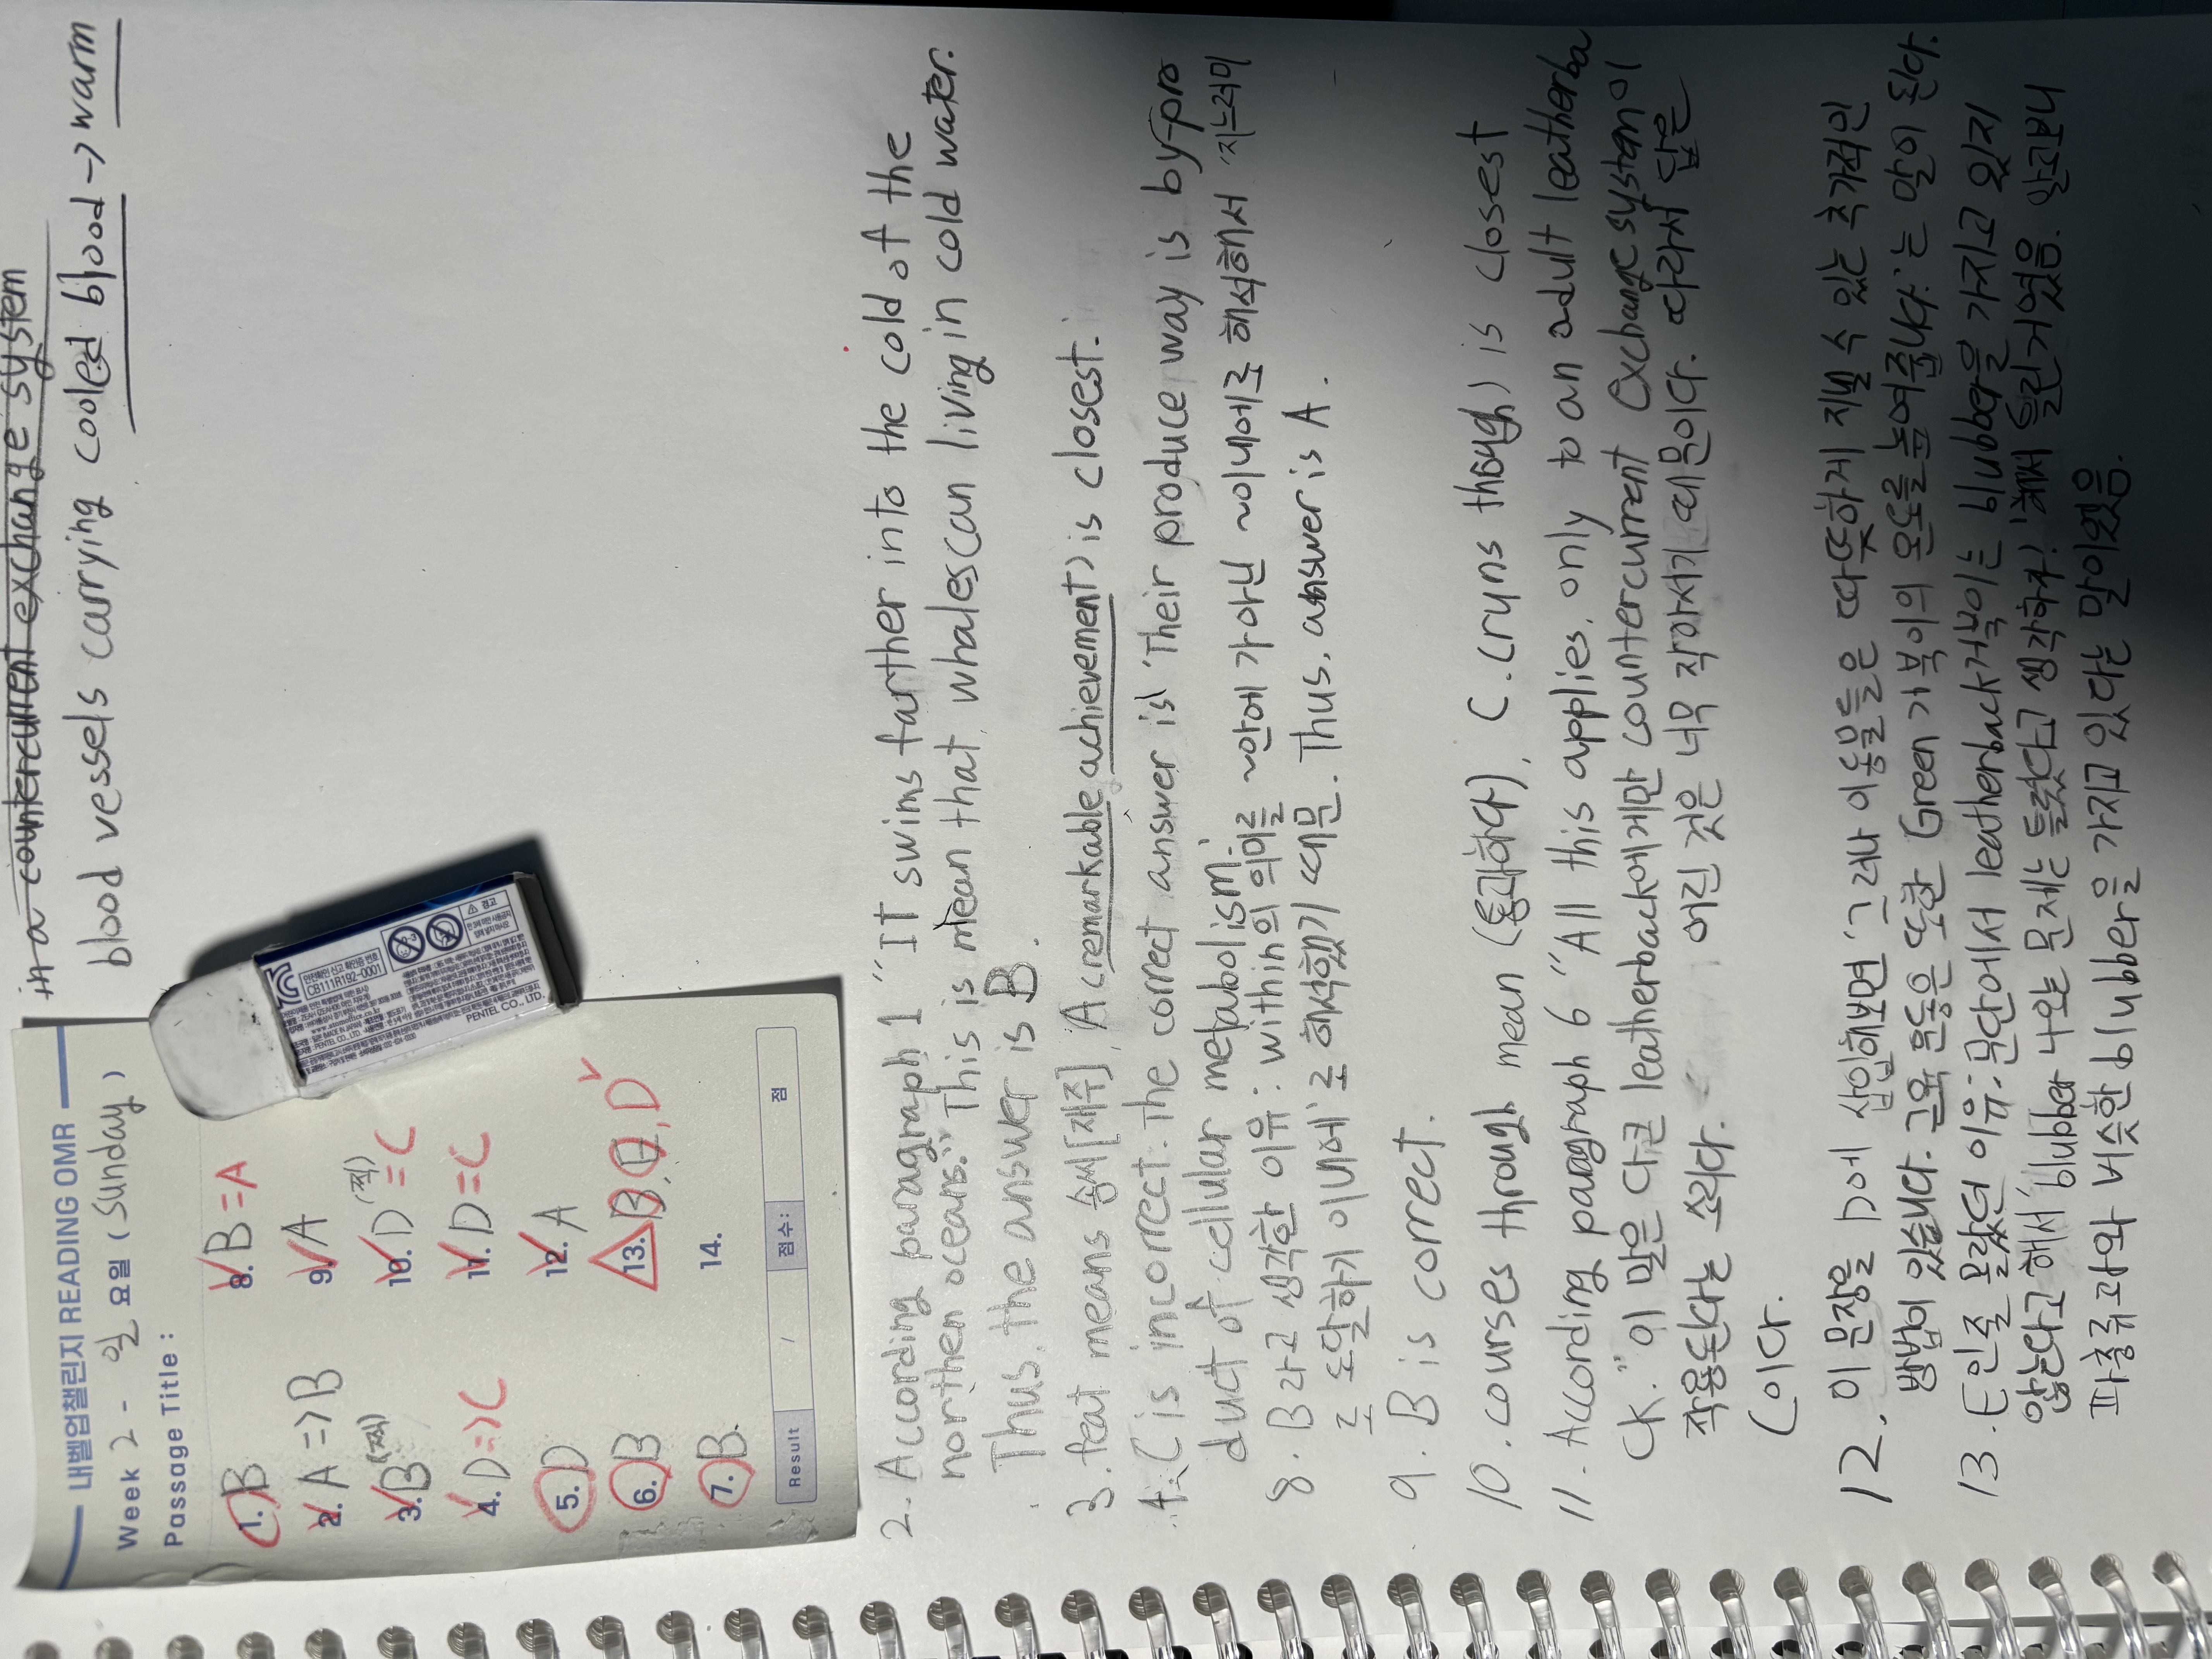 in a countercurrent exchange system
blood vessels carrying cooled blood → warm
내벨업챌린지 READING OMR
Week 2 - 일 요일 (Sunday)
Passage Title :
1. B
2. A => B
3. B (찍)
4. D => C
5. D
6. B
7. B
8. B = A
9. A
10. D (찍) = C
11. D = C
12. A
13. B, E, D
14.
Result
/
점수:
점
CB111R192-0001
경고
PENTEL CO., LTD.
2. According paragraph 1 "It swims farther into the cold of the
northen oceans." This is mean that whales can living in cold water.
Thus. the answer is B.
3. feat means 솜씨[재주], A (remarkable achievement) is closest.
4. C is incorrect. The correct answer is 'Their produce way is by-pro
duct of cellular metabolism.'
8. B라고 생각한 이유: within의 의미를 ~안에 가 아닌 ~이내에로 해석해서 '지느러미
로 도달하기 이내에'로 해석했기 때문. Thus. answer is A.
9. B is correct.
10. courses through mean (통과하다), C.(runs though) is closest
11. According paragraph 6 "All this applies, only to an adult leatherba
ck." 이 말은 다큰 leatherback에게만 countercurrent exchange system이
작용된다는 소리다. 어린 것은 너무 작아서기 때문이다. 따라서 답은
C이다.
12. 이 문장을 D에 삽입해보면 '그러나 이동물들은 따뜻하게 지낼 수 있는 추가적인
방법이 있습니다. 근육 운동은 또한 Green 거북이의 온도를 높여줍니다.'는 말이 된다.
13. E인줄 몰랐던 이유: 문단에서 leatherback거북이는 blubber을 가지고 있지
않는다고 해서 blubber 나오는 문제는 틀렸다고 생각하자! 해서 틀린거였음. 알고보니
파충류과와 비슷한 blubber을 가지고 있다는 말이었음.